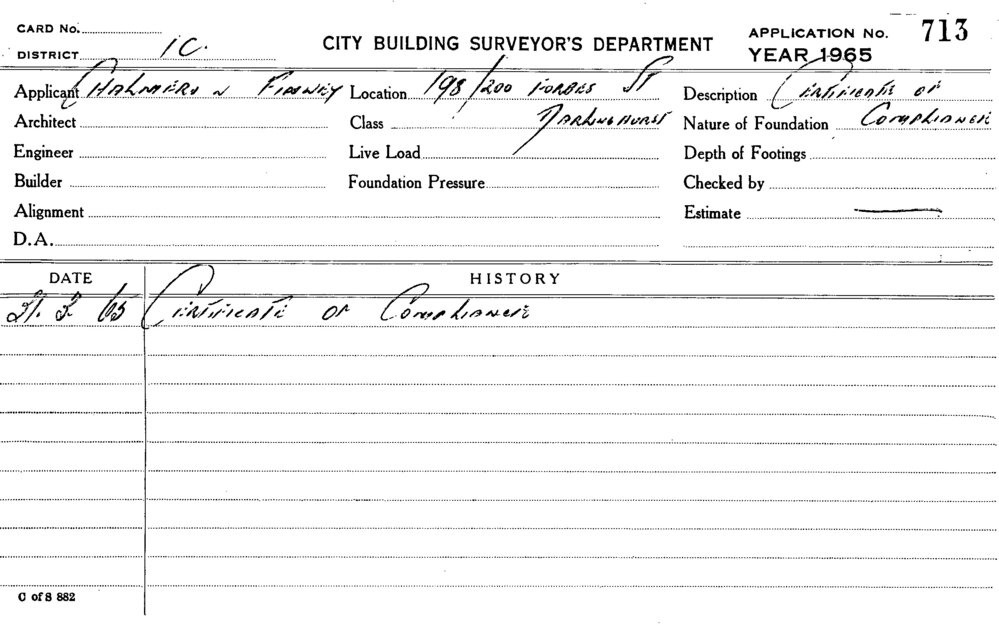 CARD No.
DISTRICT 1C.
CITY BUILDING SURVEYOR'S DEPARTMENT
APPLICATION No. 713
YEAR 1965
Applicant CHALMERS Location 198/200 FORBES ST Description CERTIFICATE OF
Architect Class DARLINGHURST Nature of Foundation COMPLIANCE
Engineer Live Load Depth of Footings
Builder Foundation Pressure Checked by
Alignment Estimate —
D.A.
DATE HISTORY
65 CERTIFICATE OF COMPLIANCE
C of S 882